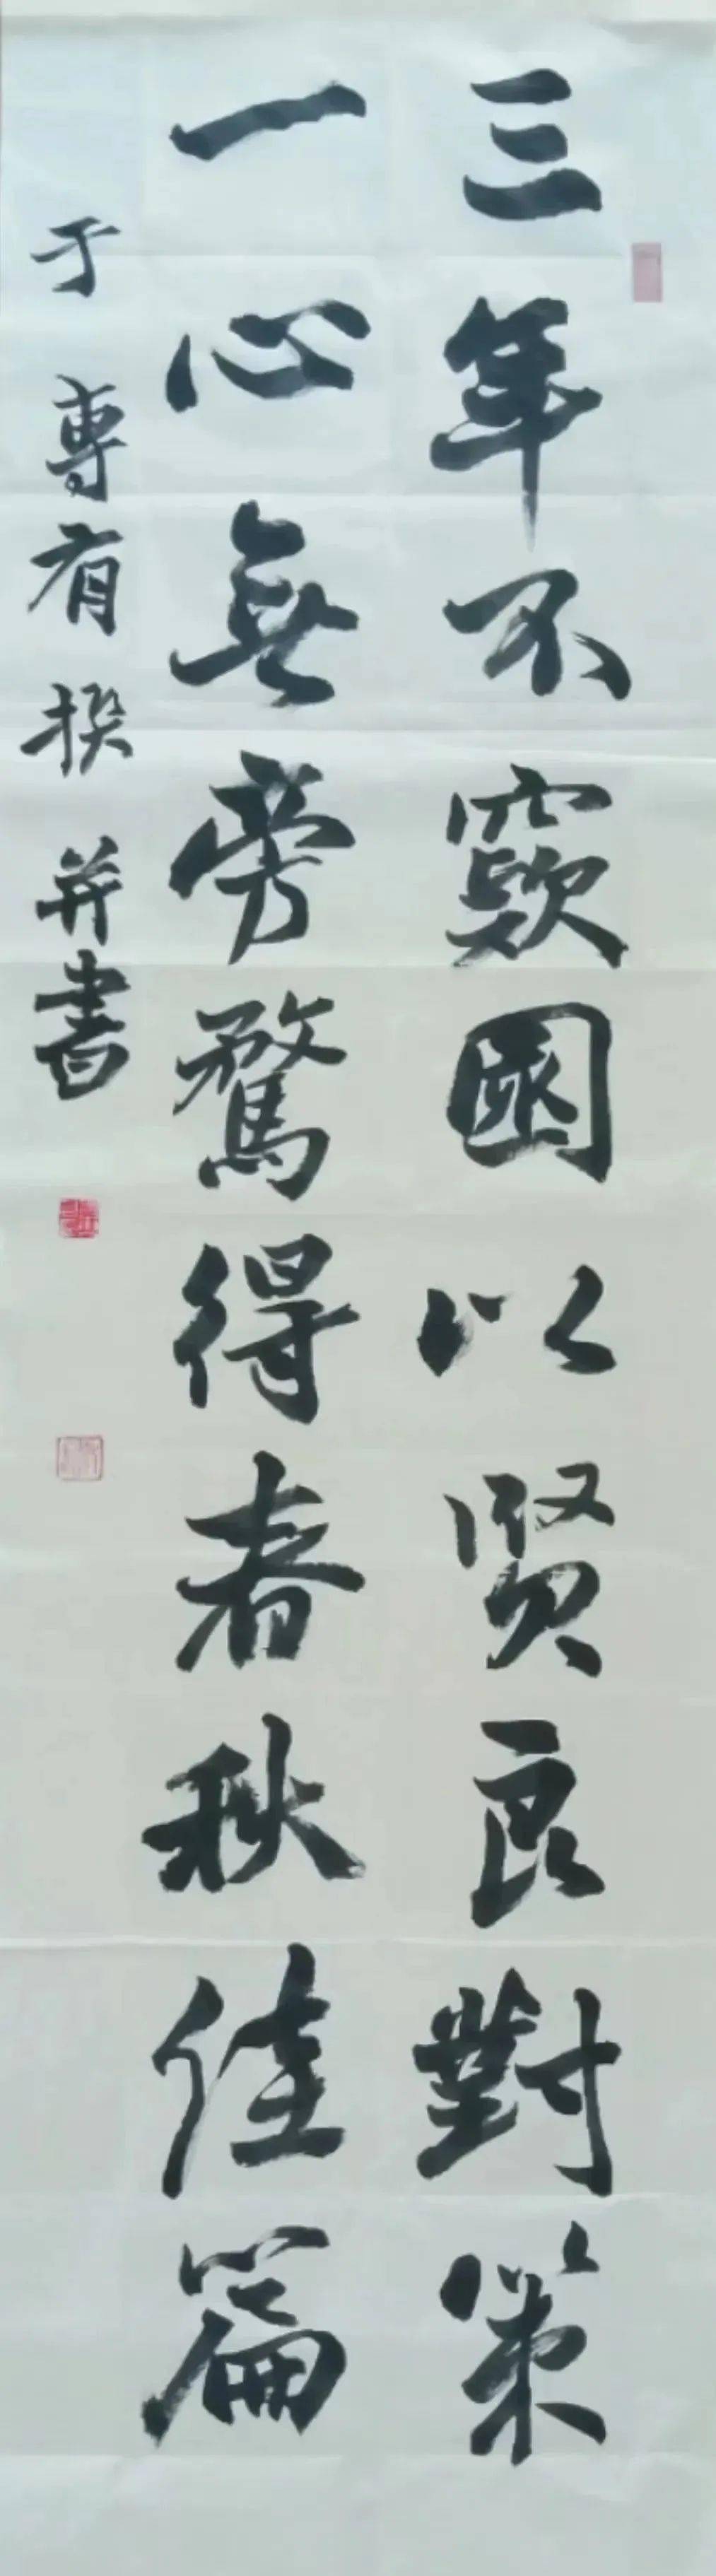 三年不窺園以贤良對策
一心無旁騖得春秋佳篇
于專有撰并書